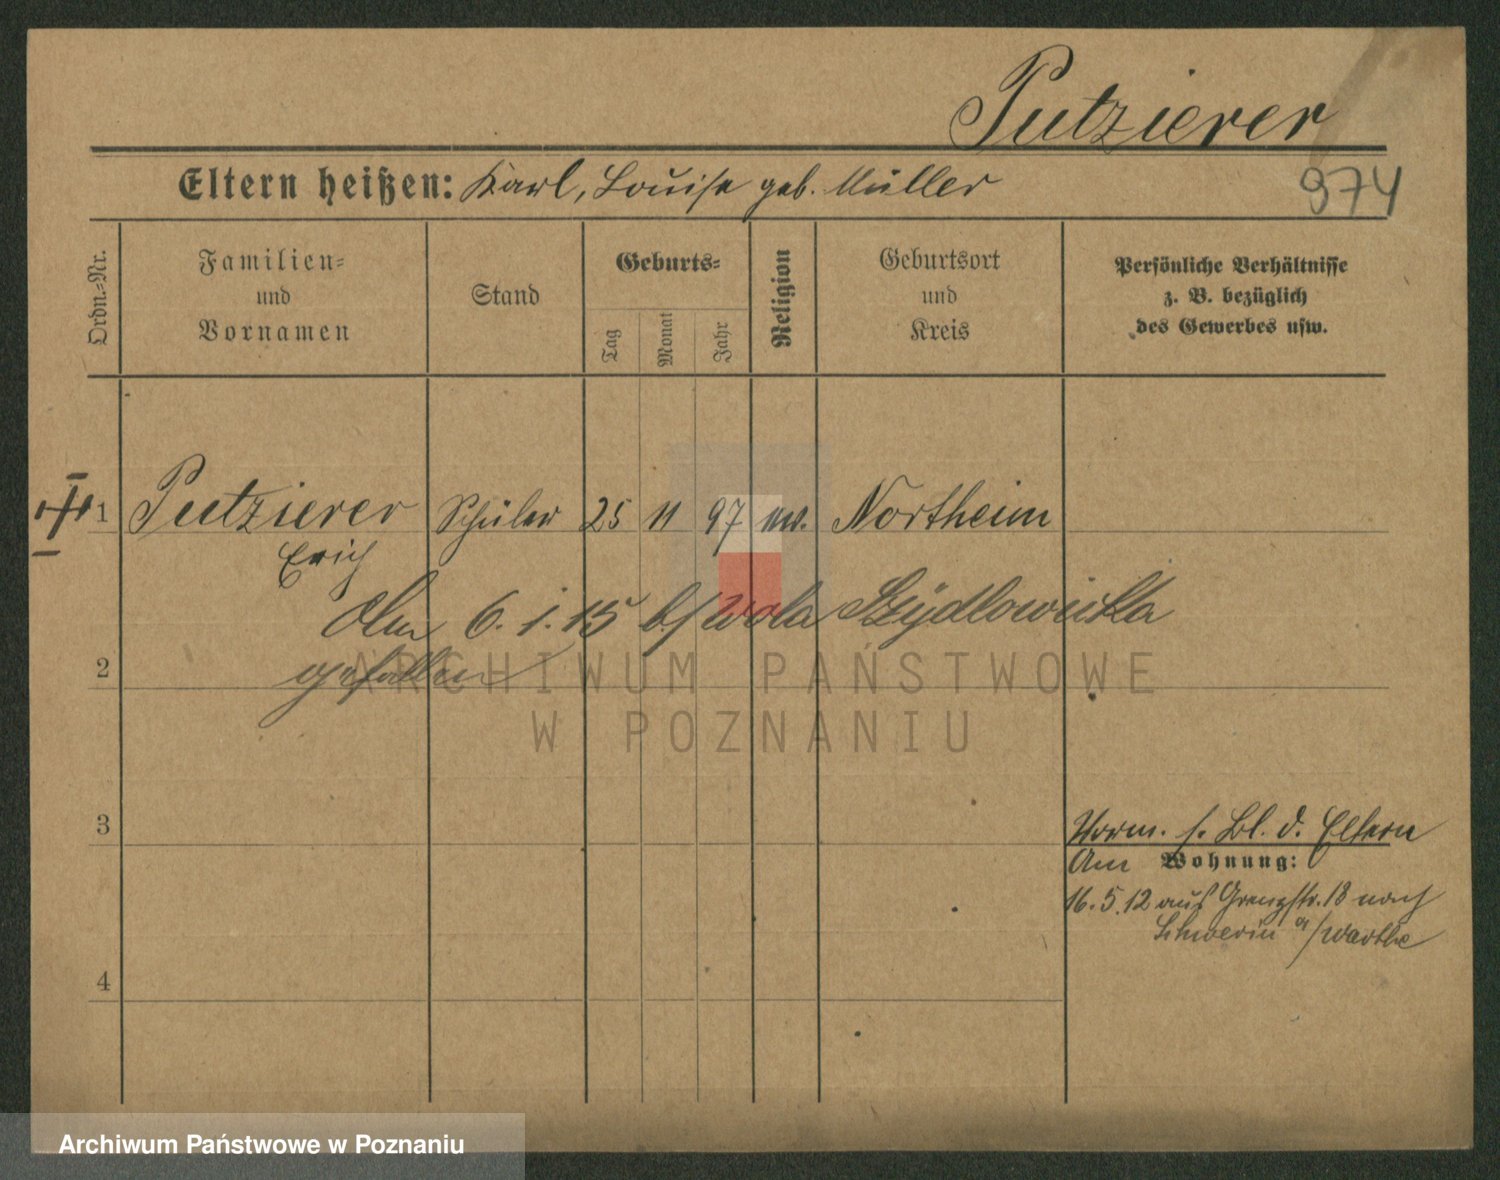 Putzierer
Eltern heißen: Karl, Louise geb. Müller
974
Ordn.-Nr.
Familien-
und
Vornamen
Stand
Geburts-
Tag
Monat
Jahr
Religion
Geburtsort
und
Kreis
Persönliche Verhältnisse
z. B. bezüglich
des Gewerbes usw.
1 Putzierer Schüler 25 11 97 ev. Northeim
Erich
Am 6. 1. 15 b/ Wola Szydlowiecka
gefallen
2
ARCHIWUM PAŃSTWOWE
W POZNANIU
3
Vorm. s. Bl. d. Eltern
Am Wohnung:
16. 5. 12 aus Grenzstr. 18 nach
Schwerin a/Warthe
4
Archiwum Państwowe w Poznaniu